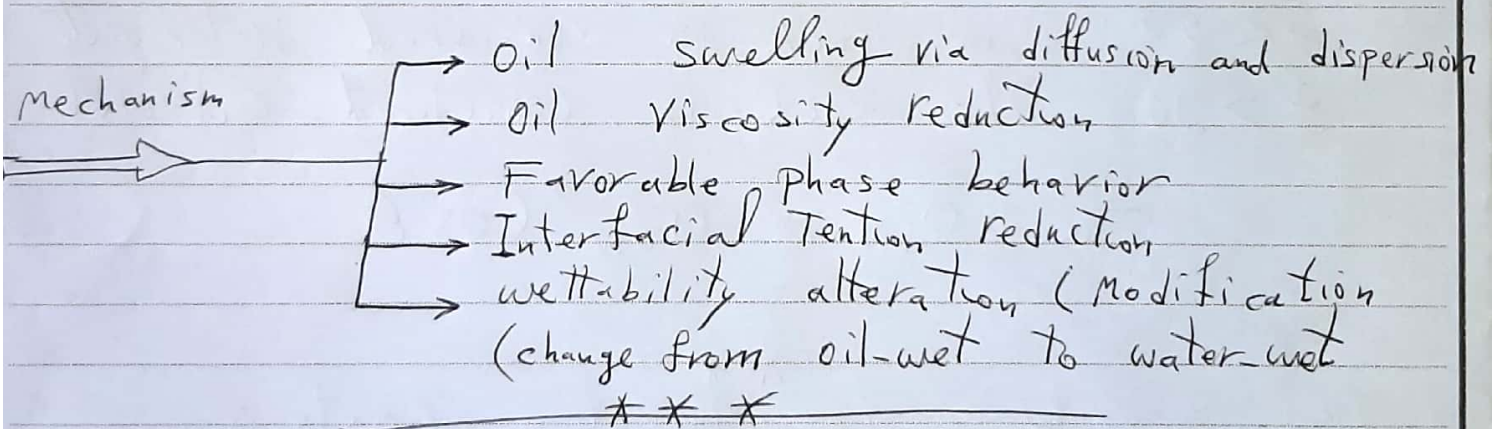 Oil swelling via diffusion and dispersion
Mechanism
Oil Viscosity reduction
Favorable phase behavior
Interfacial Tention reduction
wettability alteration (Modification
(change from oil-wet to water-wet
* * *